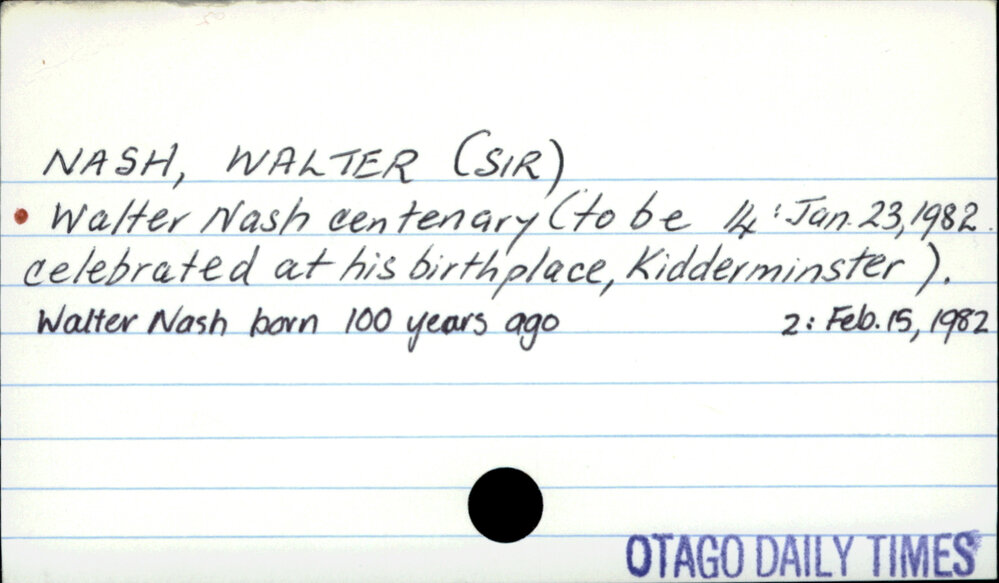 NASH, WALTER (SIR)
Walter Nash centenary (to be 14: Jan. 23, 1982.
celebrated at his birthplace, Kidderminster).
Walter Nash born 100 years ago 2: Feb. 15, 1982
OTAGO DAILY TIMES